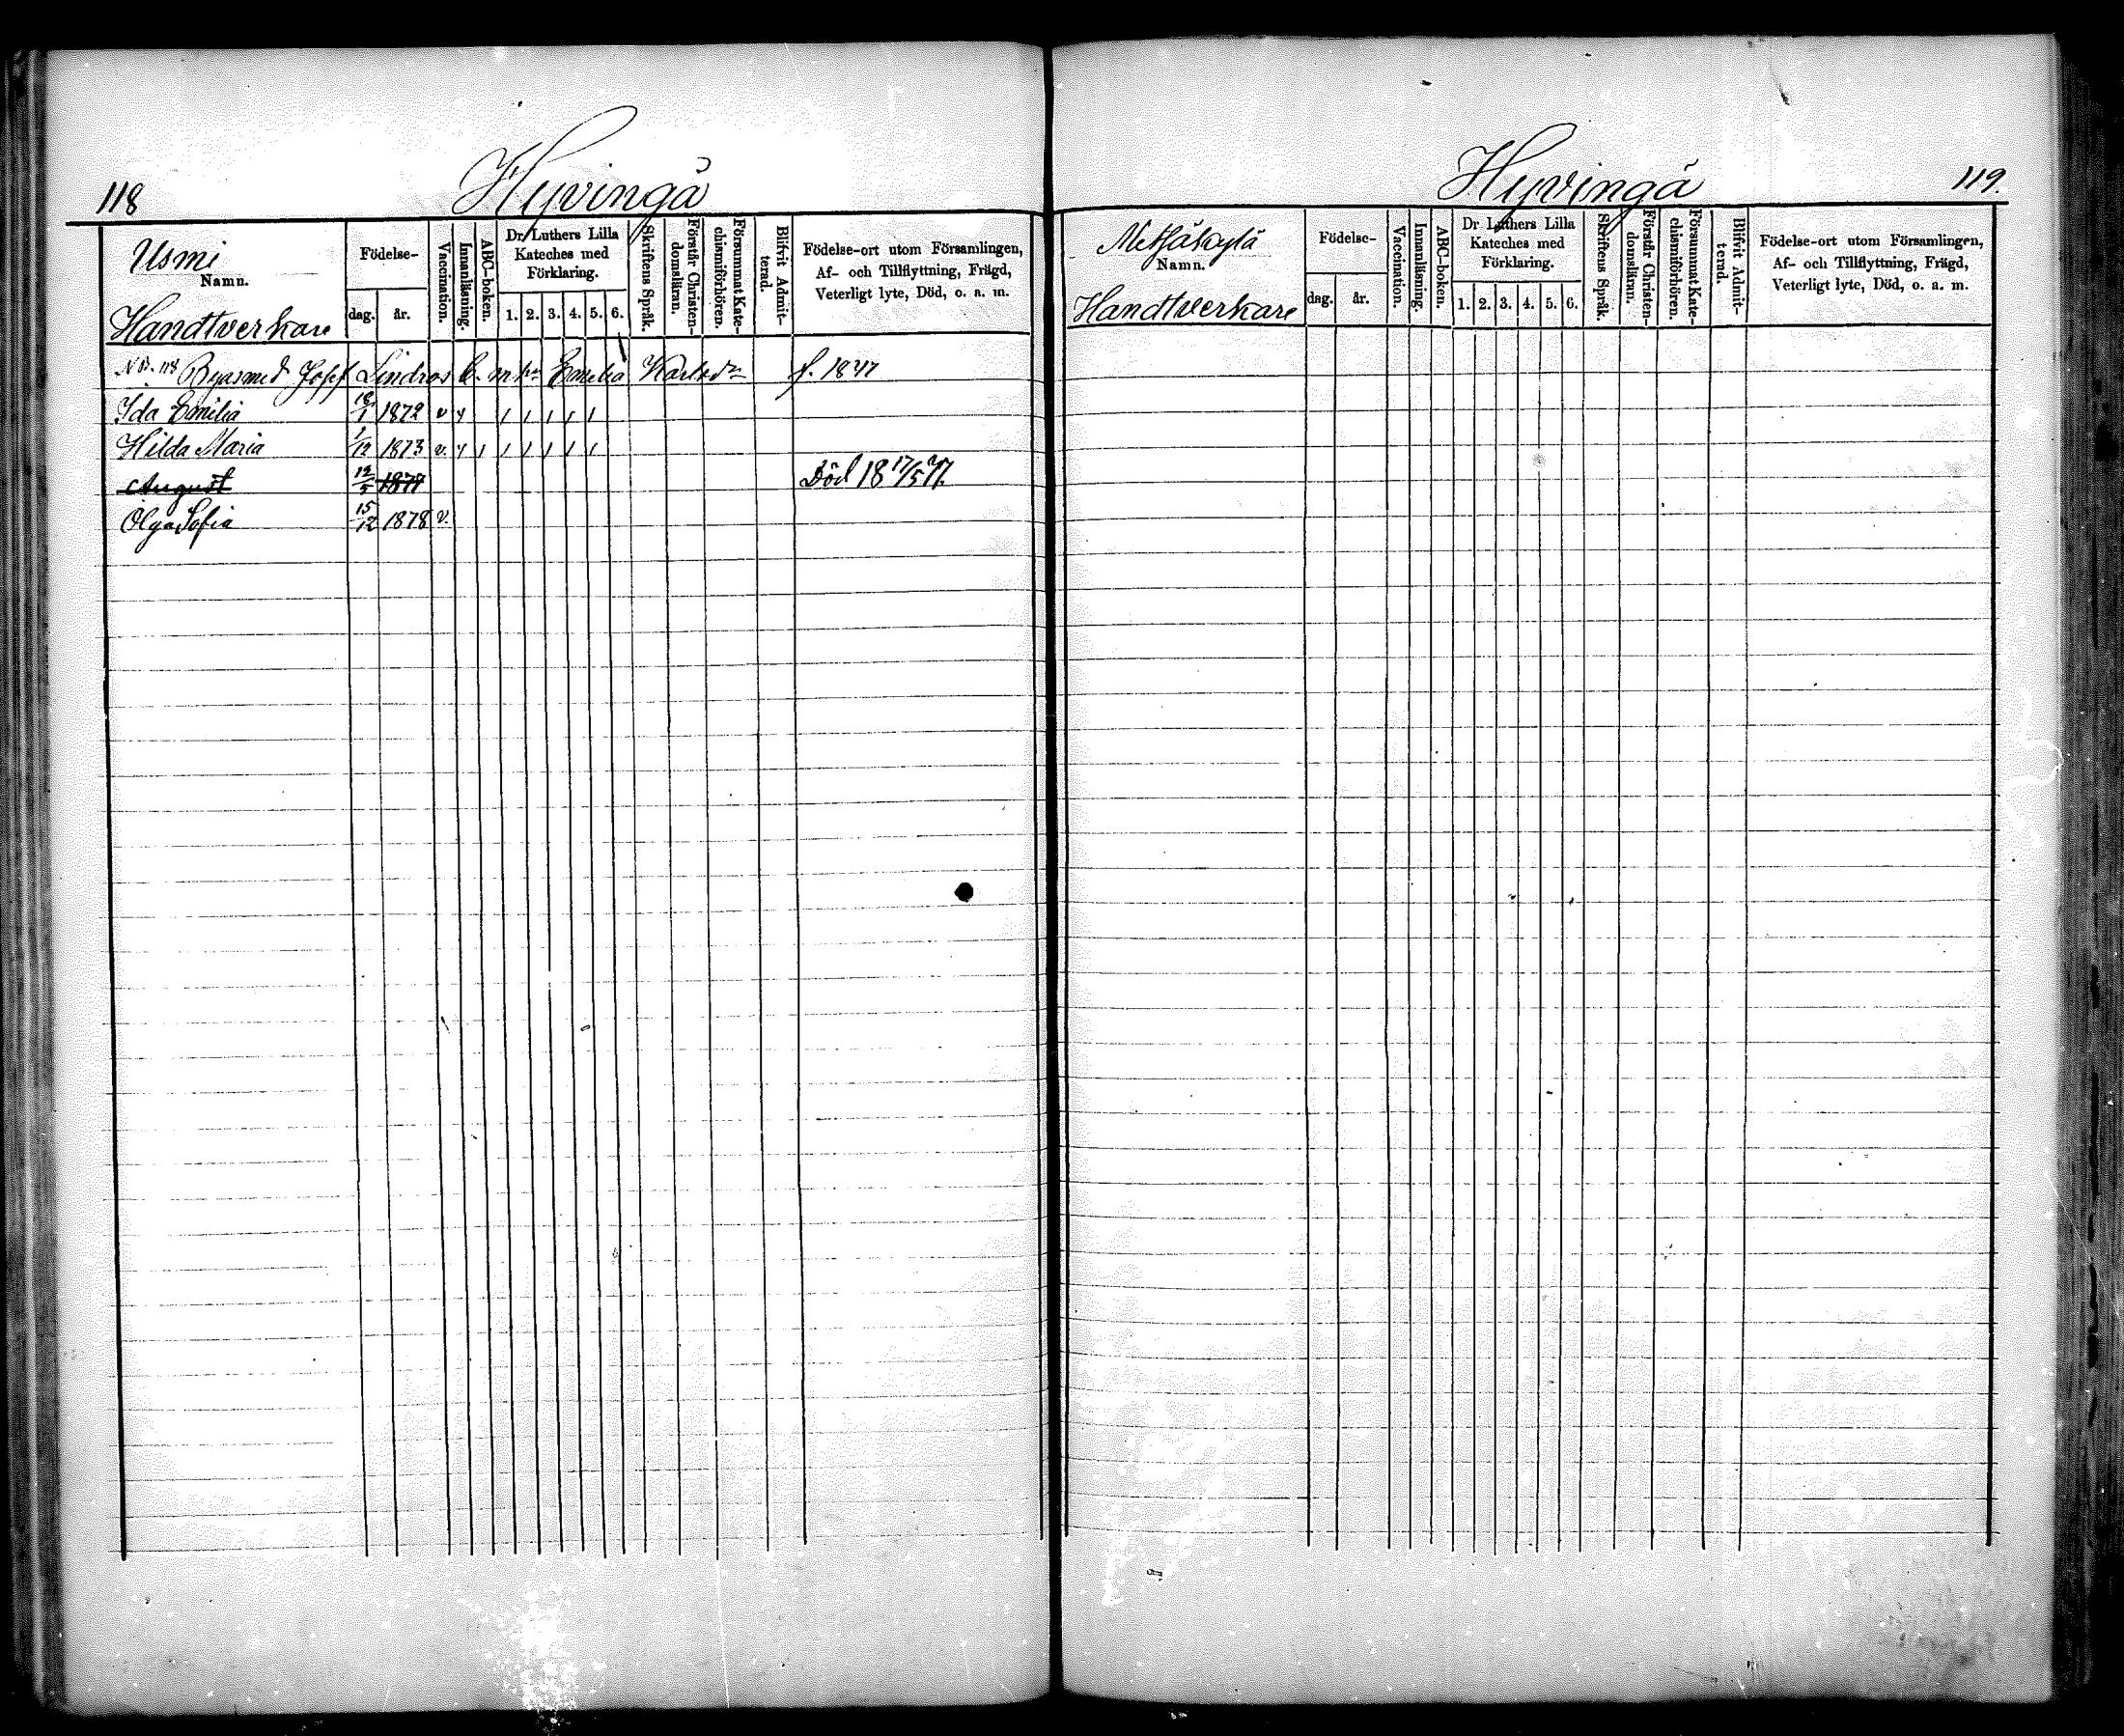 118
Hyvingå
Usmi
Namn.
Handtverkare
Födelse-
dag. år.
Vaccination.
Innanläsning.
ABC-boken.
Dr Luthers Lilla
Kateches med
Förklaring.
1. 2. 3. 4. 5. 6.
Skriftens Språk.
Förstår Christen-
domsläran.
Försummat Kate-
chismiförhören.
Blifvit Admit-
terad.
Födelse-ort utom Församlingen,
Af- och Tillflyttning, Frägd,
Veterligt lyte, Död, o. a. m.
Byasmed Josef Lindros Emelia Karlsdr f. 1847
Ida Emilia 18/1 1872 v
Hilda Maria 1/12 1873 v.
August 12/5 1877 Död 18 17/5 77.
Olga Sofia 15/12 1878 v.
119.
Hyvingå
Namn.
Handtverkare
Födelse-
dag. år.
Vaccination.
Innanläsning.
ABC-boken.
Dr Luthers Lilla
Kateches med
Förklaring.
1. 2. 3. 4. 5. 6.
Skriftens Språk.
Förstår Christen-
domsläran.
Försummat Kate-
chismiförhören.
Blifvit Admit-
terad.
Födelse-ort utom Församlingen,
Af- och Tillflyttning, Frägd,
Veterligt lyte, Död, o. a. m.